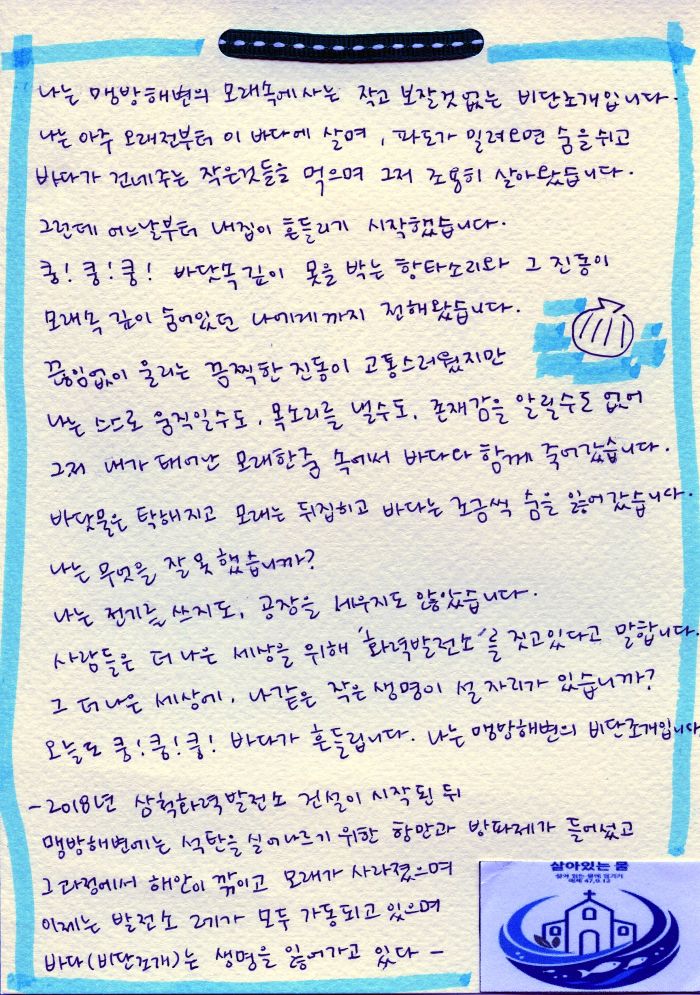 나는 맹방해변의 모래속에사는 작고 보잘것없는 비단조개입니다.
나는 아주 오래전부터 이 바다에 살며, 파도가 밀려오면 숨을쉬고
바다가 건네주는 작은것들을 먹으며 그저 조용히 살아왔습니다.
그런데 어느날부터 내집이 흔들리기 시작했습니다.
쿵! 쿵! 쿵! 바닷속깊이 못을 박는 항타소리와 그 진동이
모래속 깊이 숨어있던 나에게까지 전해왔습니다.
끊임없이 울리는 끔찍한 진동이 고통스러웠지만
나는 스스로 움직일수도, 목소리를 낼수도, 존재감을 알릴수도 없어
그저 내가 태어난 모래한줌 속에서 바다와 함께 죽어갔습니다.
바닷물은 탁해지고 모래는 뒤집히고 바다는 조금씩 숨을 잃어갔습니다.
나는 무엇을 잘못했습니까?
나는 전기를 쓰지도, 공장을 세우지도 않았습니다.
사람들은 더 나은 세상을 위해 '화력발전소'를 짓고있다고 말합니다.
그 더나은 세상에, 나같은 작은생명이 설 자리가 있습니까?
오늘도 쿵! 쿵! 쿵! 바다가 흔들립니다. 나는 맹방해변의 비단조개입니다
- 2018년 삼척화력발전소 건설이 시작된 뒤
맹방해변에는 석탄을 실어나르기 위한 항만과 방파제가 들어섰고
그과정에서 해안이 깎이고 모래가 사라졌으며
이제는 발전소 2기가 모두 가동되고 있으며
바다(비단조개)는 생명을 잃어가고 있다 -
살아있는 물
에제 47,9.12